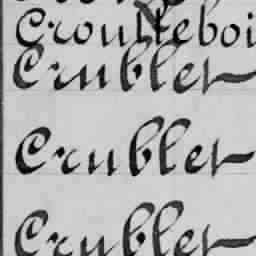 Croutteboi
Crublet
Crublet
Crublet